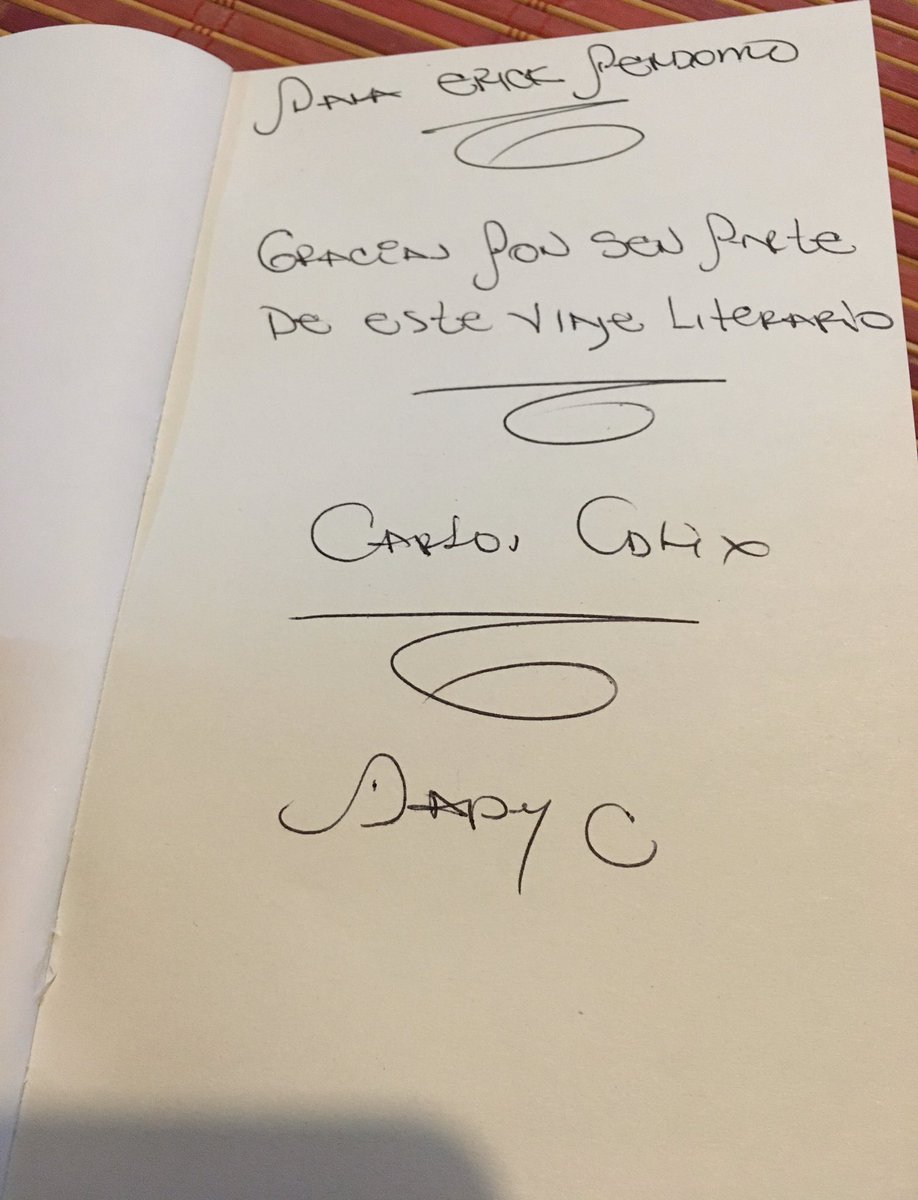 Para Erick Perdomo
Gracias por ser parte
de este viaje literario
Carlos Colix
Dapy C